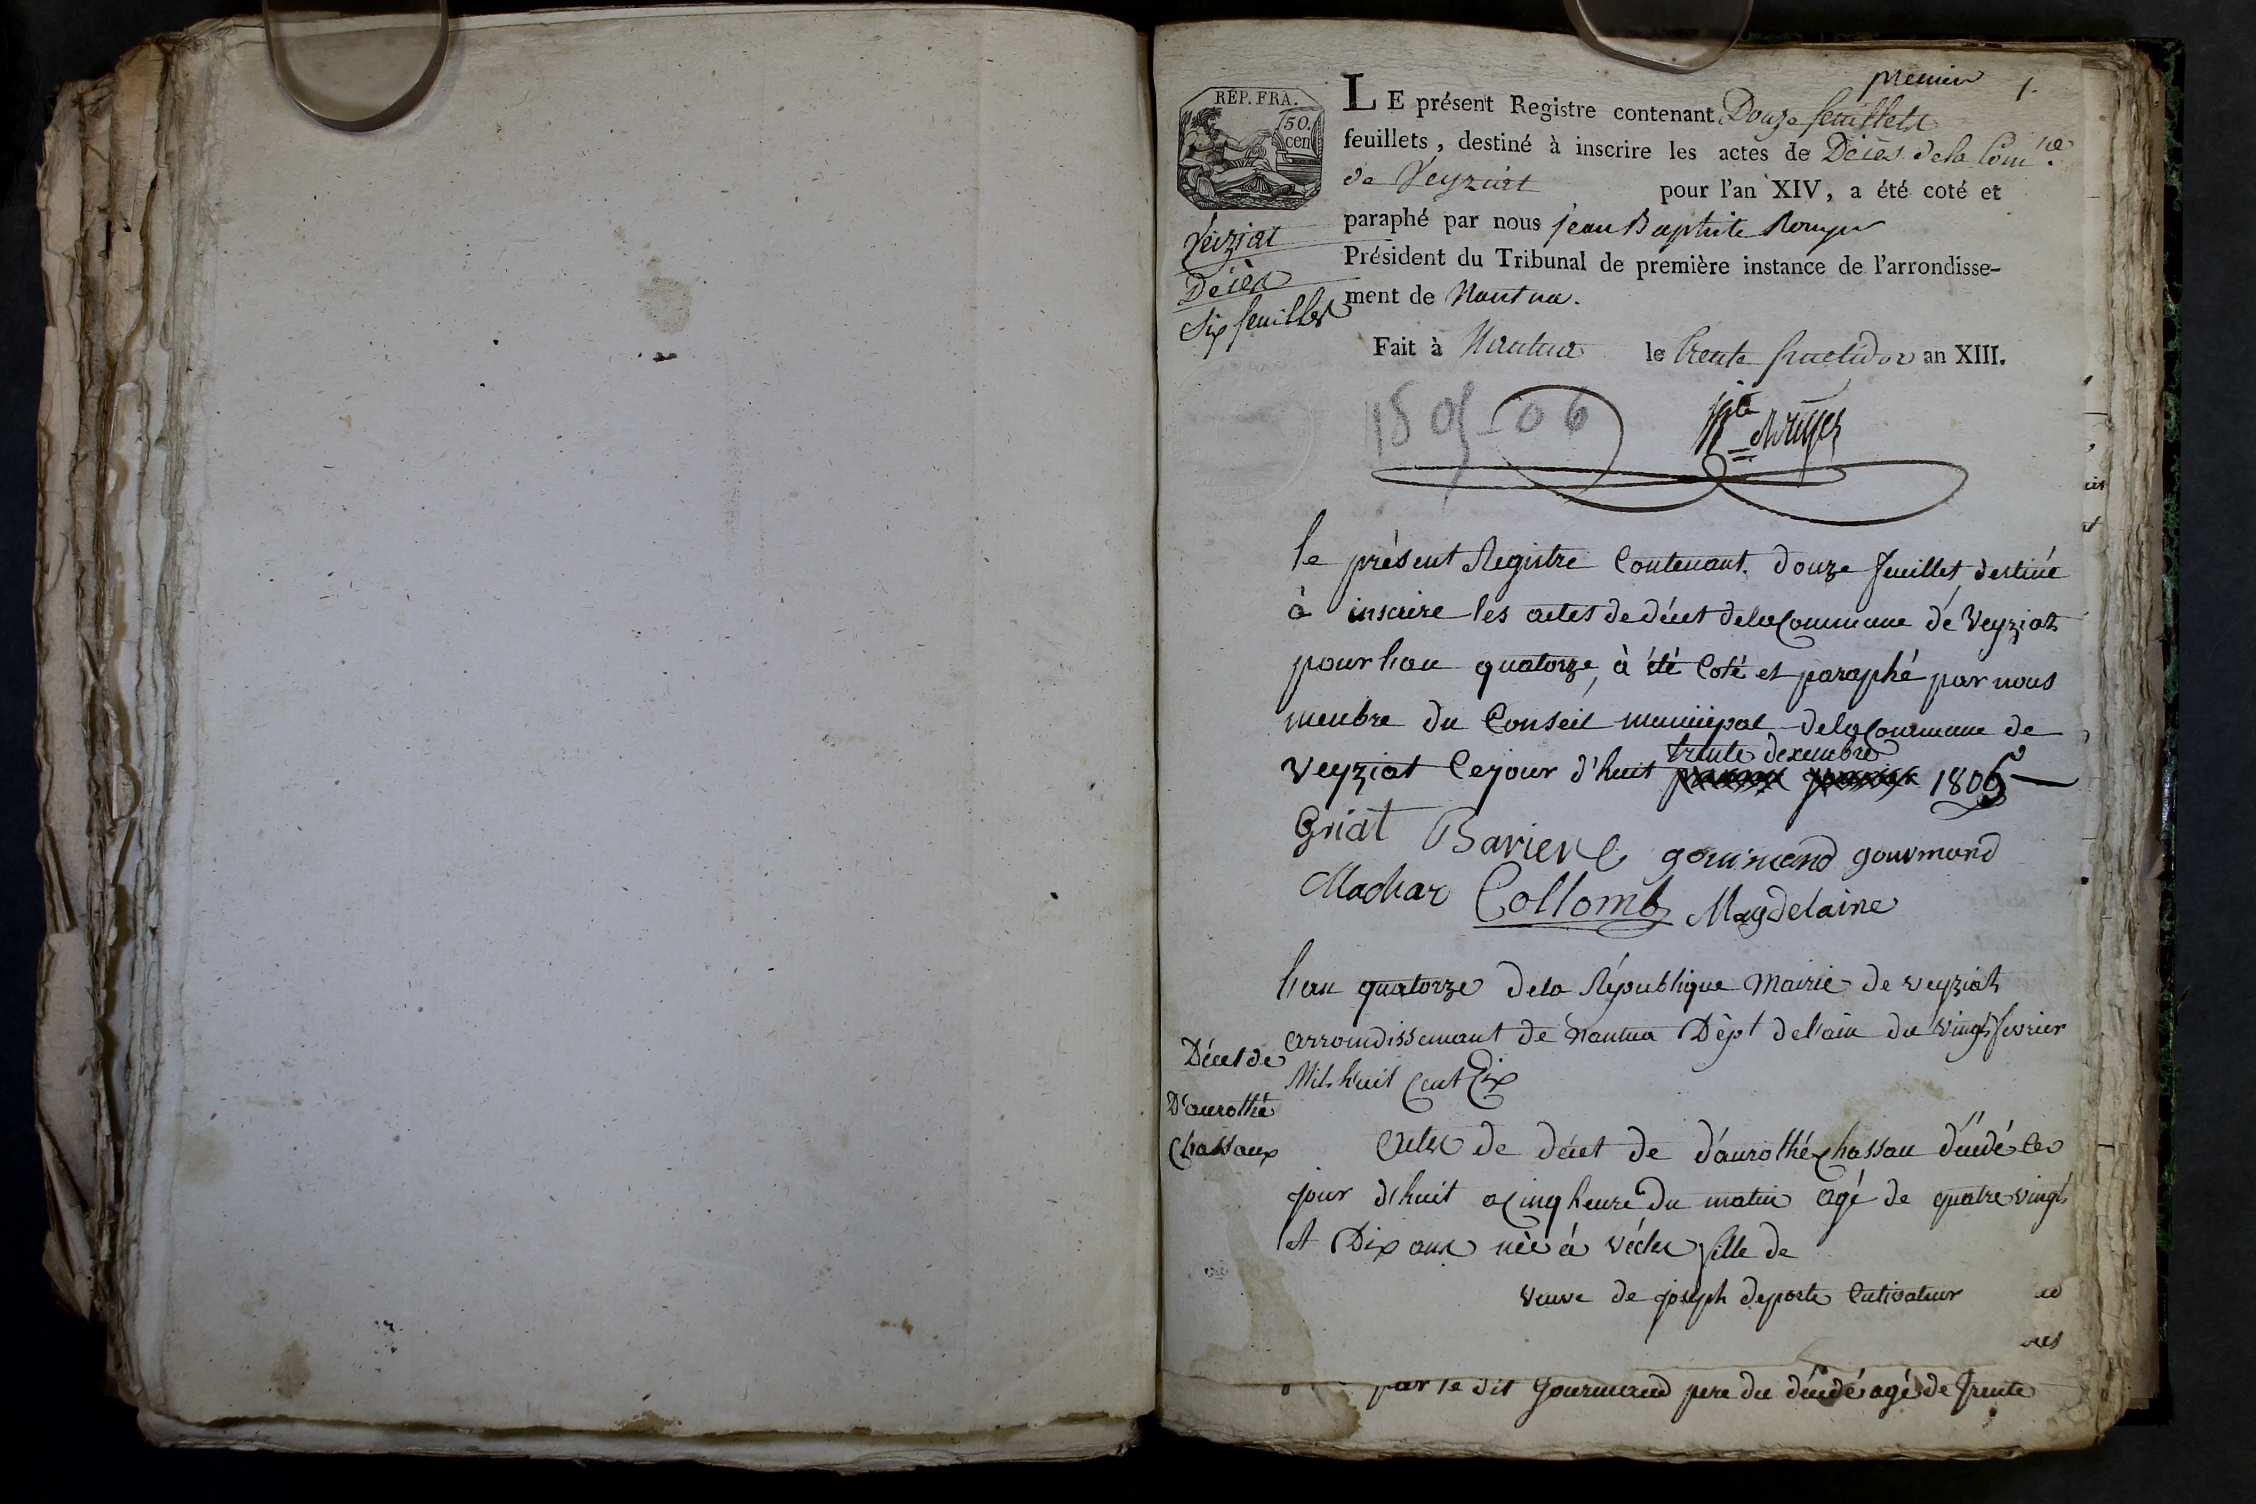 premier 1.
RÉP. FRA.
50.
cen
LE présent Registre contenant Douze feuillets
feuillets, destiné à inscrire les actes de Décès de la Com.ne
de Veyziat pour l'an XIV, a été coté et
paraphé par nous jean Baptiste Rouyer
Président du Tribunal de première instance de l'arrondisse-
ment de Nantua.
Veiziat
Décès
Six feuilles
Fait à Nantua le trente fructidor an XIII.
1805-06
le présent Registre Contenant douze feuillet destiné
à inscrire les actes de décet de la Commune de Veyziat
pour lan quatorze, à été Coté et paraphé par nous
menbre du Conseil municipal de la Commune de
trente desembre
Veyziat Cejour d'huit 1805
Griat Barier gourmand gourmand
Machar Collomb Magdelaine
lan quatorze dela République Mairie de veyziat
arroindissemant de nantua Dépt delain du vingt fevrier
Mil huit Cent Six
Décet de
D'aurothé
Chassaux
acte de décet de d'aurothé Chassau décédé ce
jour d'huit a Cinq heure du matin agé de quatre vingt
et Dix ans née à fille de
veuve de joseph deporte Cutivateur
par le dit Gourmand pere du décédé agé de trente